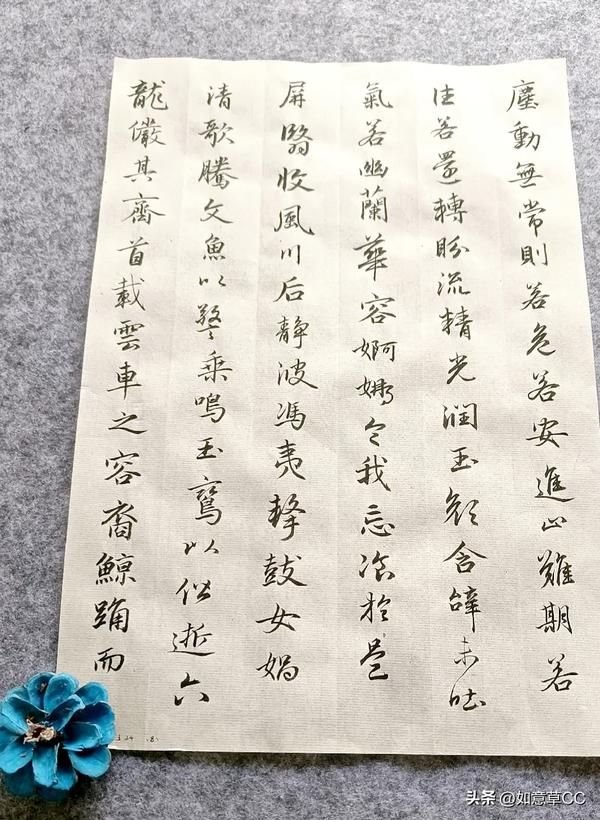 塵動無常則若危若安進止難期若
往若還轉盼流精光潤玉顏含辭未吐
氣若幽蘭華容婀娜令我忘飡於是
屏翳收風川后静波馮夷擊鼓女媧
清歌騰文魚以警乘鳴玉鸞以偕逝六
龍儼其齊首載雲車之容裔鯨踊而
头条 @如意草CC